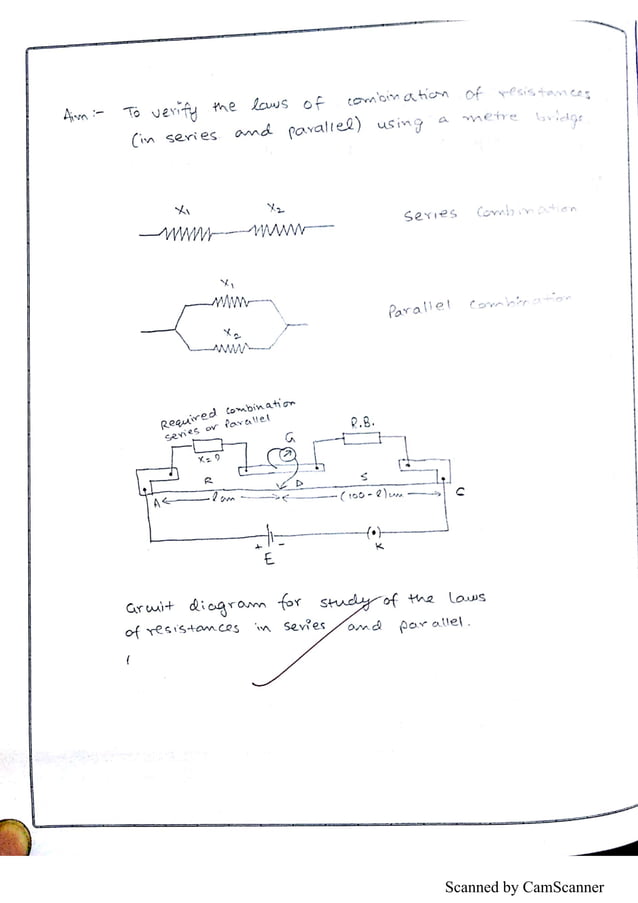 Aim :- To verify the laws of combination of resistances
(in series and parallel) using a metre bridge.
X1 X2
Series Combination
X1
Parallel Combination
X2
Required combination
series or Parallel
R.B.
G
X=?
R
S
D
A
l cm
(100-l) cm
C
+ -
E
K
circuit diagram for study of the laws
of resistances in series and parallel.
Scanned by CamScanner